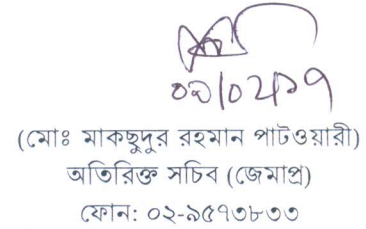 (মোঃ মাকছুদুর রহমান পাটওয়ারী)
অতিরিক্ত সচিব (জেমাপ্র)
ফোন: ০২-৯৫৭৩৮৩৩